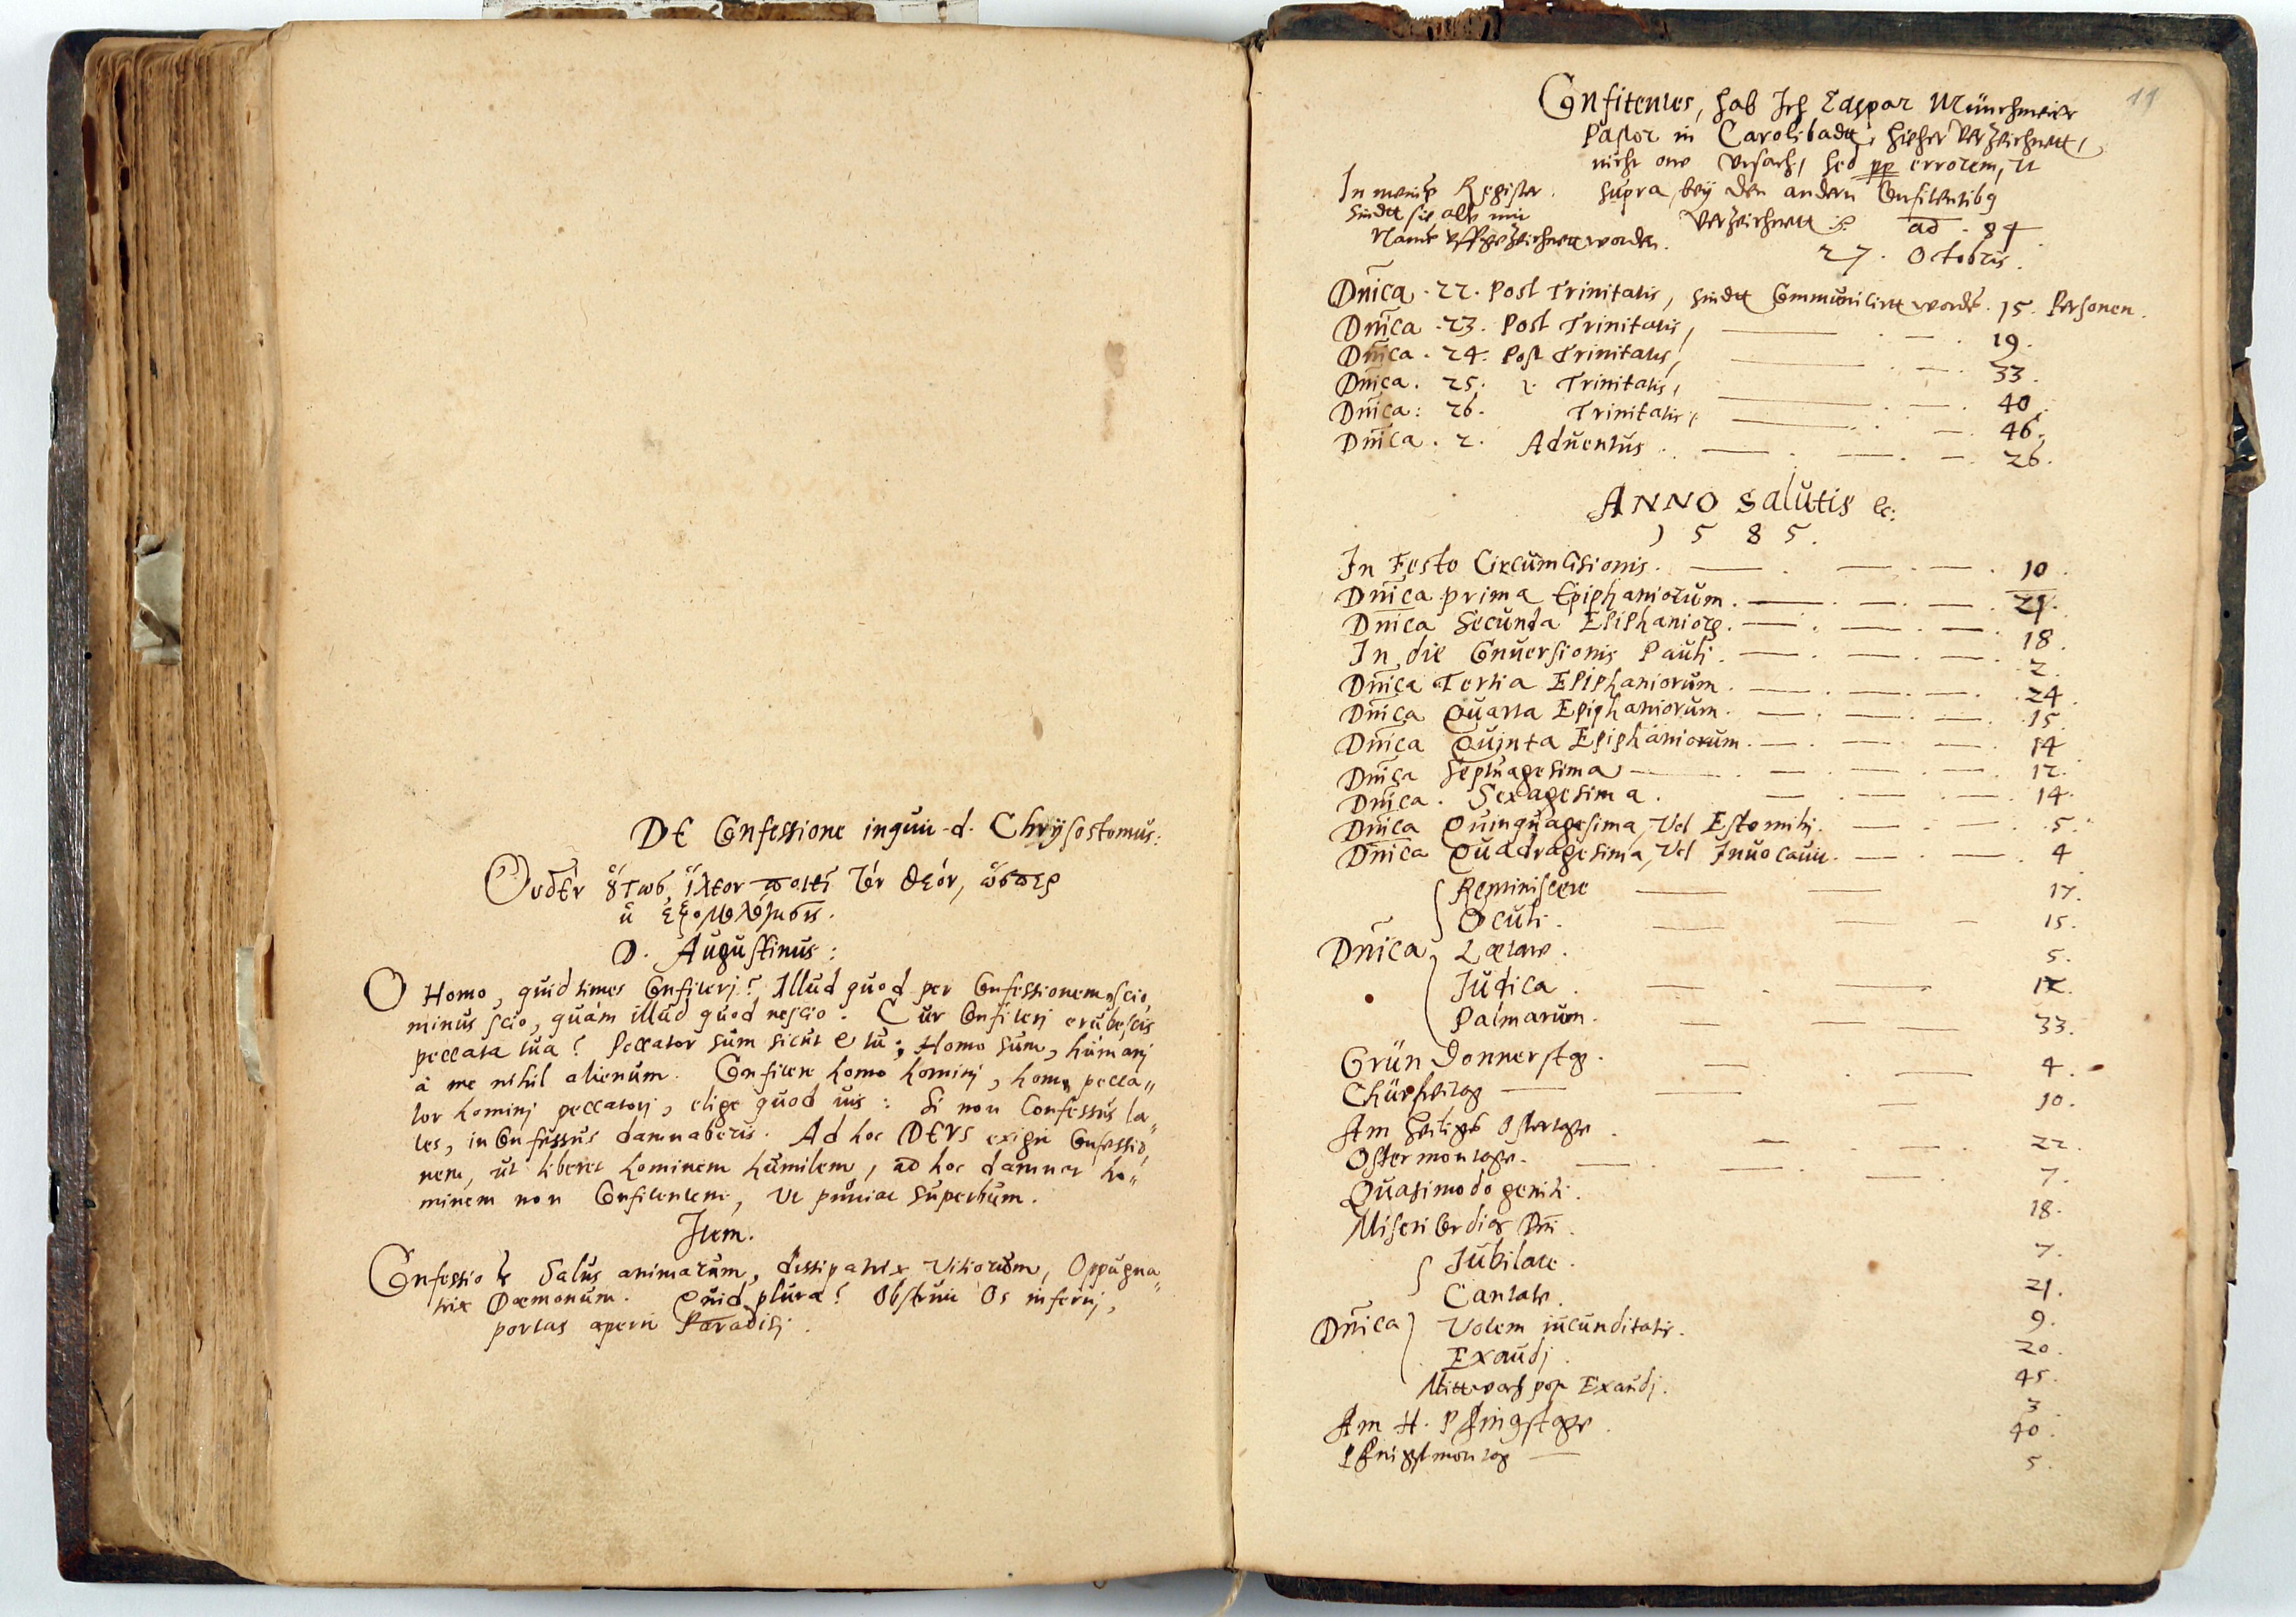 DE Confessione inquit d. Chrÿsostomus:
Ουδεν ὅτως, ἵλεον ποιεῖ τὸν θεόν, ὥσπερ
ἡ ἐξομολόγησις.
D. Augustinus:
O Homo, quid times Confiterj? Illud quod per Confessionem scio,
minus scio, quàm illud quod nescio. Cur Confiterj erubescis
peccata tua? Peccator sum sicut & tu; Homo sum, humanj
à me nihil alienum. Confitere homo hominj, homo pecca„
tor hominj peccatorj, elige quod uis: Si non Confessus la„
tes, inConfessus damnaberis. Ad hoc DEVS exigit Confessio„
nem, ut liberet hominem humilem, ad hoc damnat ho„
minem non Confitentem, Vt puniat superbum.
Item.
Confessio Salus animarum, dissipatrix Vitiorum, Oppugna„
trix Dæmonum. Quid plura? Obstruit Os infernj,
portas aperit Paradisj.
11
Confitentes, hab Ich Caspar Münchmeier
Pastor in Carolsbadtt, hieher Verzeichnett,
nicht one Vrsach, sed pp errorem,
supra beÿ den andern Confitentibq
Verzeichnett ad . 84
In meinē Register
sindtt sie alle mit
Namē vffgezeichnett worden.
27. Octobris.
Dnica . 22. Post Trinitatis, sindtt Communicirtt wordē. 15. Personen.
Dnica . 23. Post Trinitatis, 19.
Dnica . 24. Post Trinitatis, 33.
Dnica . 25. Trinitatis, 40.
Dnica : 26. Trinitatis, 46.
Dnica . 2. Aduentus . 26.
ANNO Salutis &c:
1 5 8 5.
In Festo Circumcisionis. 10.
Dnica prima Epiphaniorum. 21.
Dnica Secunda Epiphaniorꝝ. 18.
In die Conuersionis Pauli. 2.
Dnica Tertia Epiphaniorum. 24.
Dnica Quarta Epiphaniorum. 15.
Dnica Quinta Epiphaniorum. 14
Dnica Septuagesima 12.
Dnica . Sexagesima. 14.
Dnica Quinquagesima, Vel Estomihj. 5.
Dnica Quadragesima, Vel Inuocauit. 4
Reminiscere 17.
Oculi. 15.
Dnica Lætare. 5.
Judica. 12.
Palmarum. 33.
Grün Donnerstag. 4.
Charfreitag 10.
Am heiligē Ostertage. 22.
Ostermontage. 7.
Quasimodogeniti. 18.
Misericordias Dni. 7.
Jubilate. 21.
Cantate. 9.
Dnica Vocem iucunditatis. 20.
Exaudj. 45.
Mittwoch post Exaudj. 3.
Am H. Pfingstage. 40.
Pfingstmontag 5.